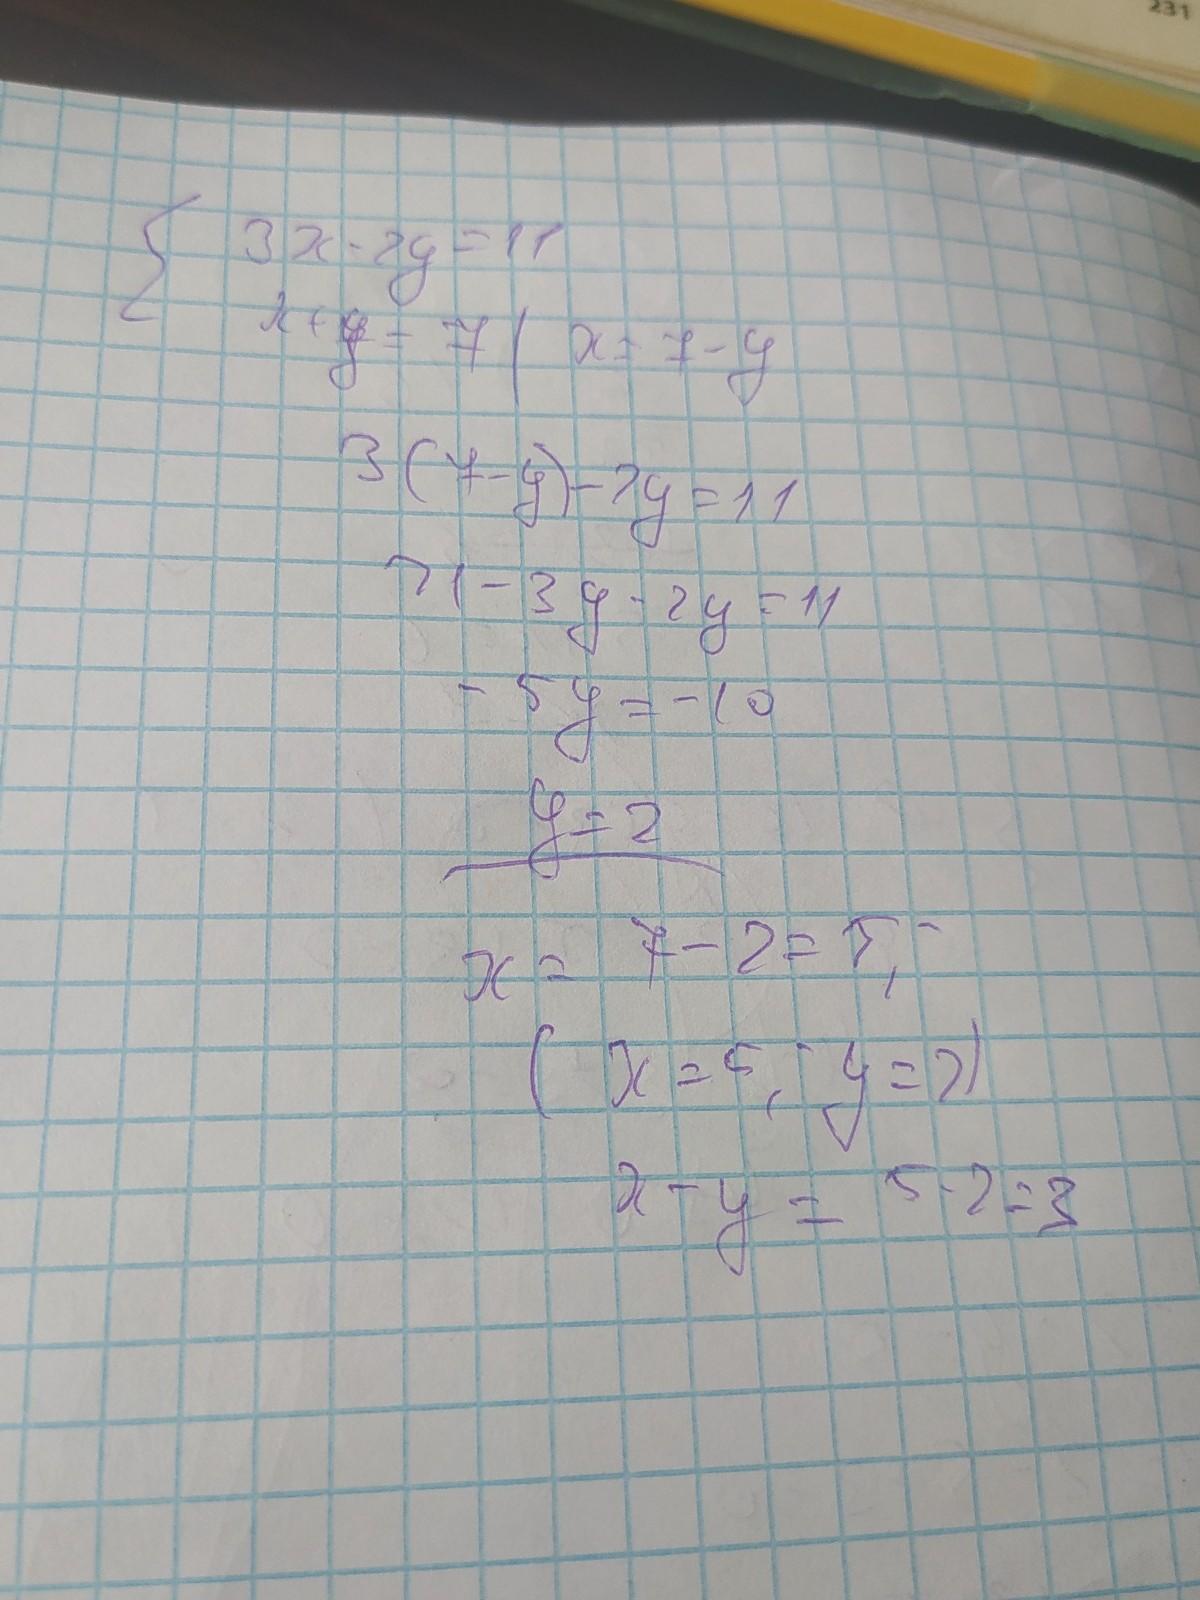 231
3x-2y=11
x+y=7 | x=7-y
3(7-y)-2y=11
21-3y-2y=11
-5y=-10
y=2
x=7-2=5,
(x=5, y=2)
x-y=5-2=3